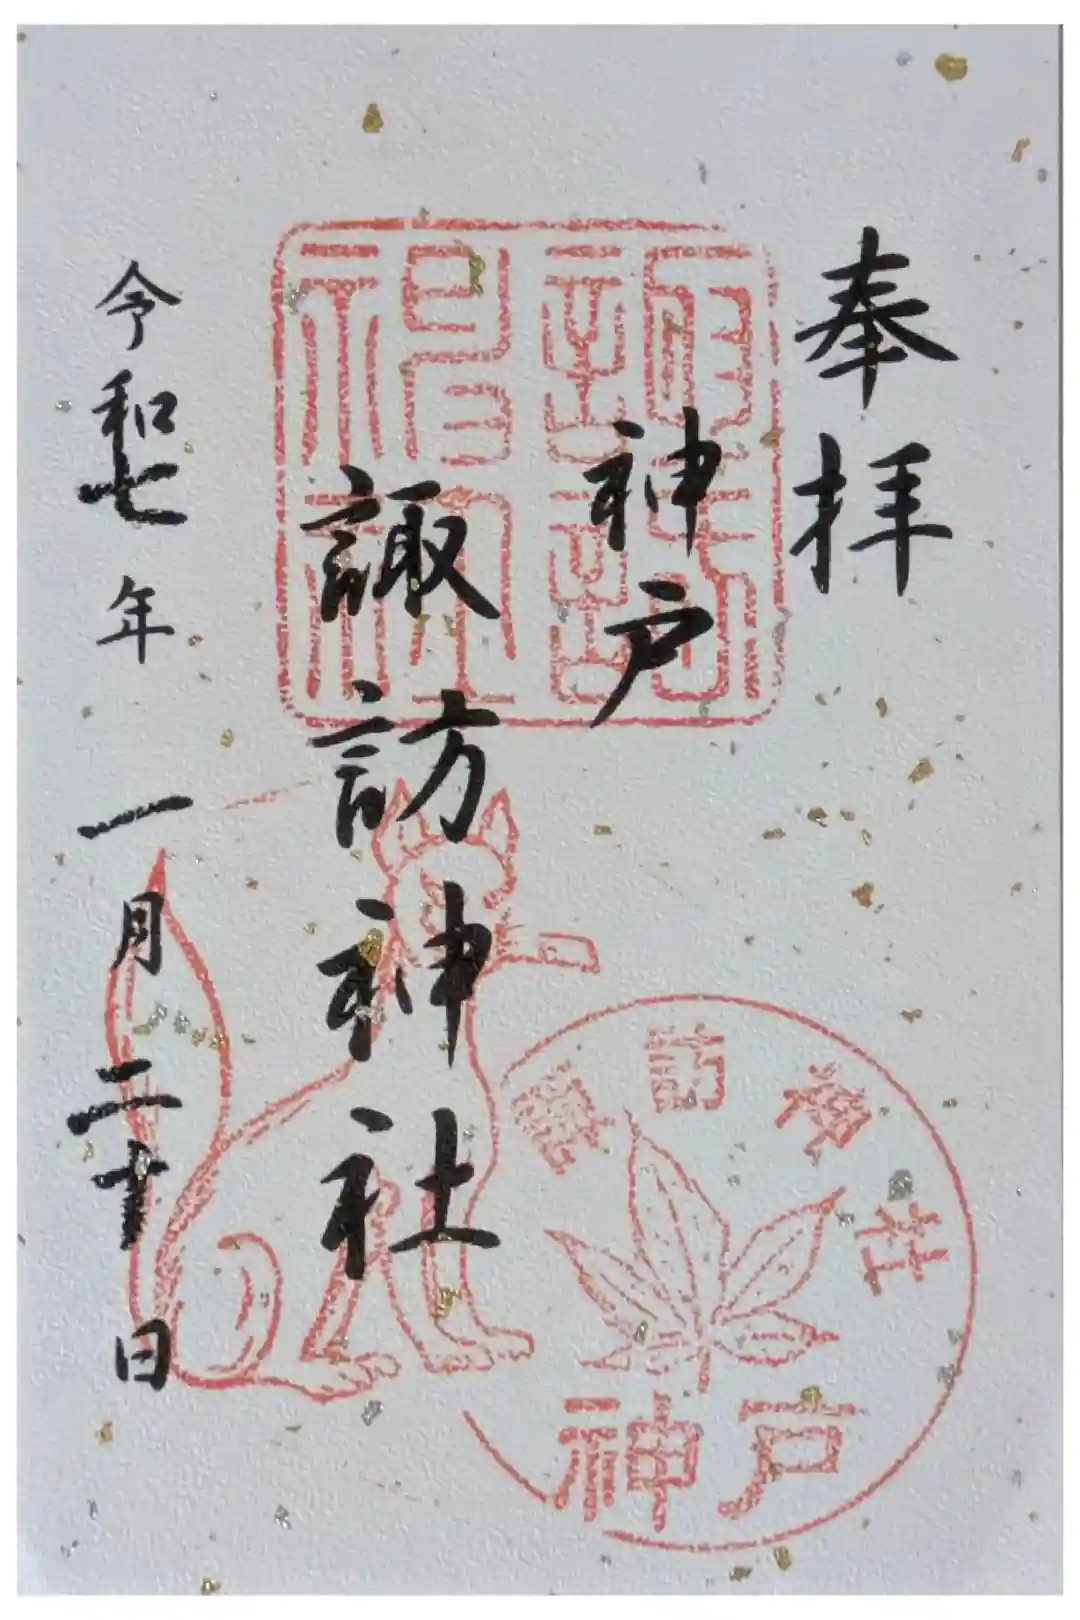 奉拝
神戸
諏訪神社
令和七年一月二十日
諏訪神社
神戸